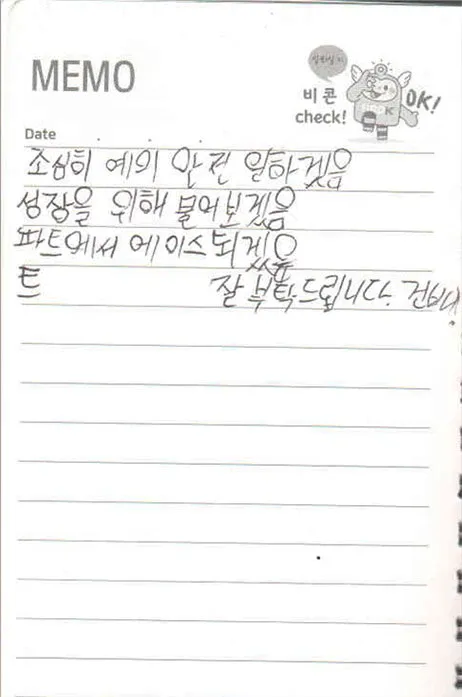 MEMO
비콘
check!
OK!
Date
조심히 예의 안전 일하겠음
성장을 위해 물어보겠음
파트에서 에이스되겠음
트 잘 부탁드립니다.